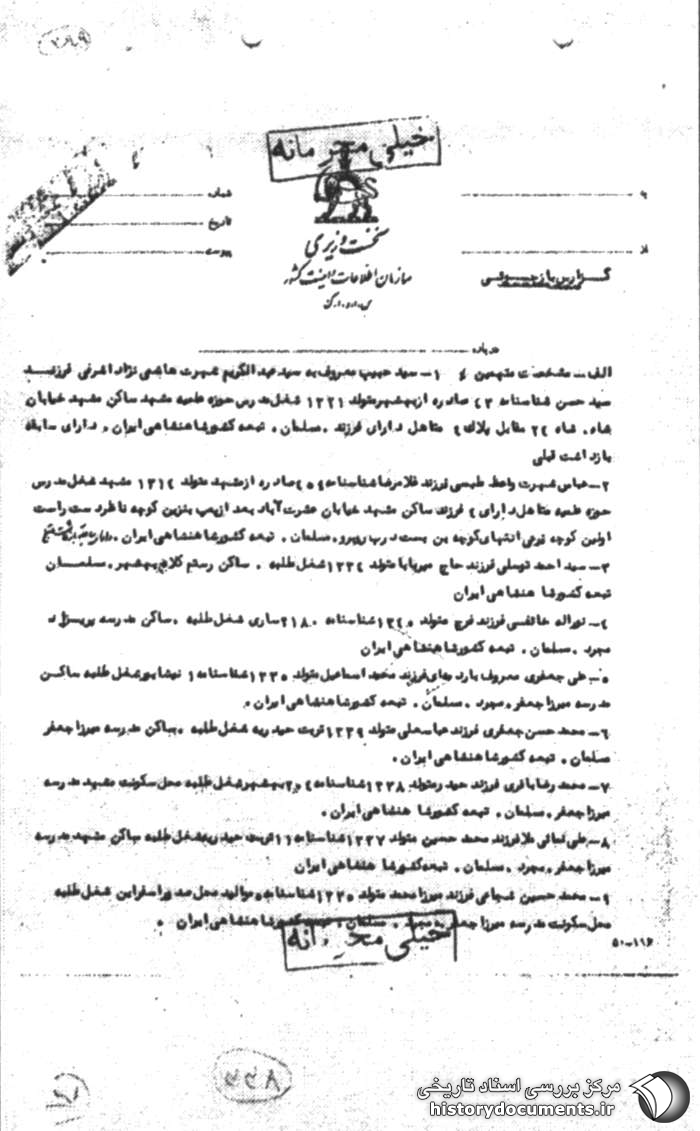 ۳۸۹
خیلی محرمانه
شماره
تاریخ
پیوست
به
از
نخست وزیری
سازمان اطلاعات و امنیت کشور
س.ا.و.ا.ک
گزارش بازجوئی
درباره
الف ـ مشخصات متهمین ۱ـ سید حبیب معروف به سید عبدالکریم شهرت هاشمی نژاد اشرفی فرزند
سید حسن شناسنامه ۴۳ صادره از بهشهر متولد ۱۳۲۱ شغل مدرس حوزه علمیه مشهد ساکن مشهد خیابان
شاه. شاه ۲۲ مقابل پلاک دارای فرزند . مسلمان . تبعه کشور شاهنشاهی ایران . دارای سابقه
بازداشت قبلی
۲ـ عباس شهرت واعظ طبسی فرزند غلامرضا شناسنامه صادره از مشهد متولد ۱۳۱۴ مشهد شغل مدرس
حوزه علمیه متاهل دارای ۴ فرزند ساکن مشهد خیابان عشرت آباد بعد از پمپ بنزین کوچه ناظر دست راست
اولین کوچه فرعی انتهای کوچه بن بست درب روبرو . مسلمان . تبعه کشور شاهنشاهی ایران .
۳ـ سید احمد توسلی فرزند حاج میربابا متولد ۱۳۳۴ شغل طلبه . ساکن رستم کلای بهشهر . مسلمان
تبعه کشور شاهنشاهی ایران
۴ـ نوراله خائفی فرزند فرج متولد ۱۳۴۰ شناسنامه ۲۱۸۰ ساری شغل طلبه . ساکن مدرسه
مجرد . مسلمان . تبعه کشور شاهنشاهی ایران
۵ـ علی جعفری معروف فرزند محمد اسماعیل متولد ۱۳۳۵ شناسنامه ۱ نیشابور شغل طلبه ساکن
مدرسه میرزا جعفر . مجرد . مسلمان . تبعه کشور شاهنشاهی ایران .
۶ـ محمد حسن جعفری فرزند عباسعلی متولد ۱۳۳۹ تربت حیدریه شغل طلبه . ساکن مدرسه میرزا جعفر
مسلمان . تبعه کشور شاهنشاهی ایران .
۷ـ محمد رضا باقری فرزند حیدر متولد ۱۳۳۸ شناسنامه بهشهر شغل طلبه محل سکونت مشهد مدرسه
میرزا جعفر . مسلمان . تبعه کشور شاهنشاهی ایران .
۸ـ علی فرزند محمد حسین متولد ۱۳۳۷ شناسنامه ۱۱ تربت حیدریه شغل طلبه ساکن مشهد مدرسه
میرزا جعفر . مجرد . مسلمان . تبعه کشور شاهنشاهی ایران
۹ـ محمد حسین شجاعی فرزند میرزا محمد متولد ۱۳۳۵ شناسنامه محل صدور اسفراین شغل طلبه
محل سکونت مدرسه میرزا جعفر . مجرد . مسلمان . تبعه کشور شاهنشاهی ایران .
خیلی محرمانه
۵۰-۱۱۶
مرکز بررسی اسناد تاریخی
historydocuments.ir